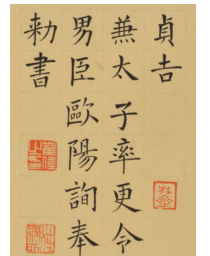 貞吉
兼太子率更令
男臣歐陽詢奉
勅書